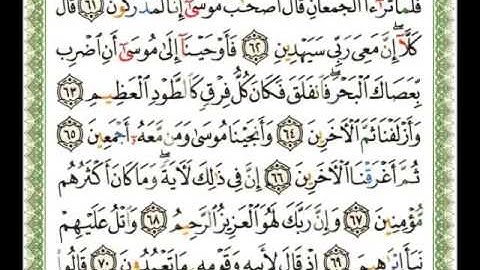 فَلَمَّا تَرَٰٓءَا ٱلْجَمْعَانِ قَالَ أَصْحَٰبُ مُوسَىٰٓ إِنَّا لَمُدْرَكُونَ ٦١ قَالَ
كَلَّآ ۖ إِنَّ مَعِىَ رَبِّى سَيَهْدِينِ ٦٢ فَأَوْحَيْنَآ إِلَىٰ مُوسَىٰٓ أَنِ ٱضْرِب
بِّعَصَاكَ ٱلْبَحْرَ ۖ فَٱنفَلَقَ فَكَانَ كُلُّ فِرْقٍ كَٱلطَّوْدِ ٱلْعَظِيمِ ٦٣
وَأَزْلَفْنَا ثَمَّ ٱلْأَخَرِينَ ٦٤ وَأَنجَيْنَا مُوسَىٰ وَمَن مَّعَهُۥٓ أَجْمَعِينَ ٦٥
ثُمَّ أَغْرَقْنَا ٱلْأَخَرِينَ ٦٦ إِنَّ فِى ذَٰلِكَ لَأَيَةً ۖ وَمَا كَانَ أَكْثَرُهُم
مُّؤْمِنِينَ ٦٧ وَإِنَّ رَبَّكَ لَهُوَ ٱلْعَزِيزُ ٱلرَّحِيمُ ٦٨ وَٱتْلُ عَلَيْهِمْ
نَبَأَ إِبْرَٰهِيمَ ٦٩ إِذْ قَالَ لِأَبِيهِ وَقَوْمِهِۦ مَا تَعْبُدُونَ ٧٠ قَالُوا۟